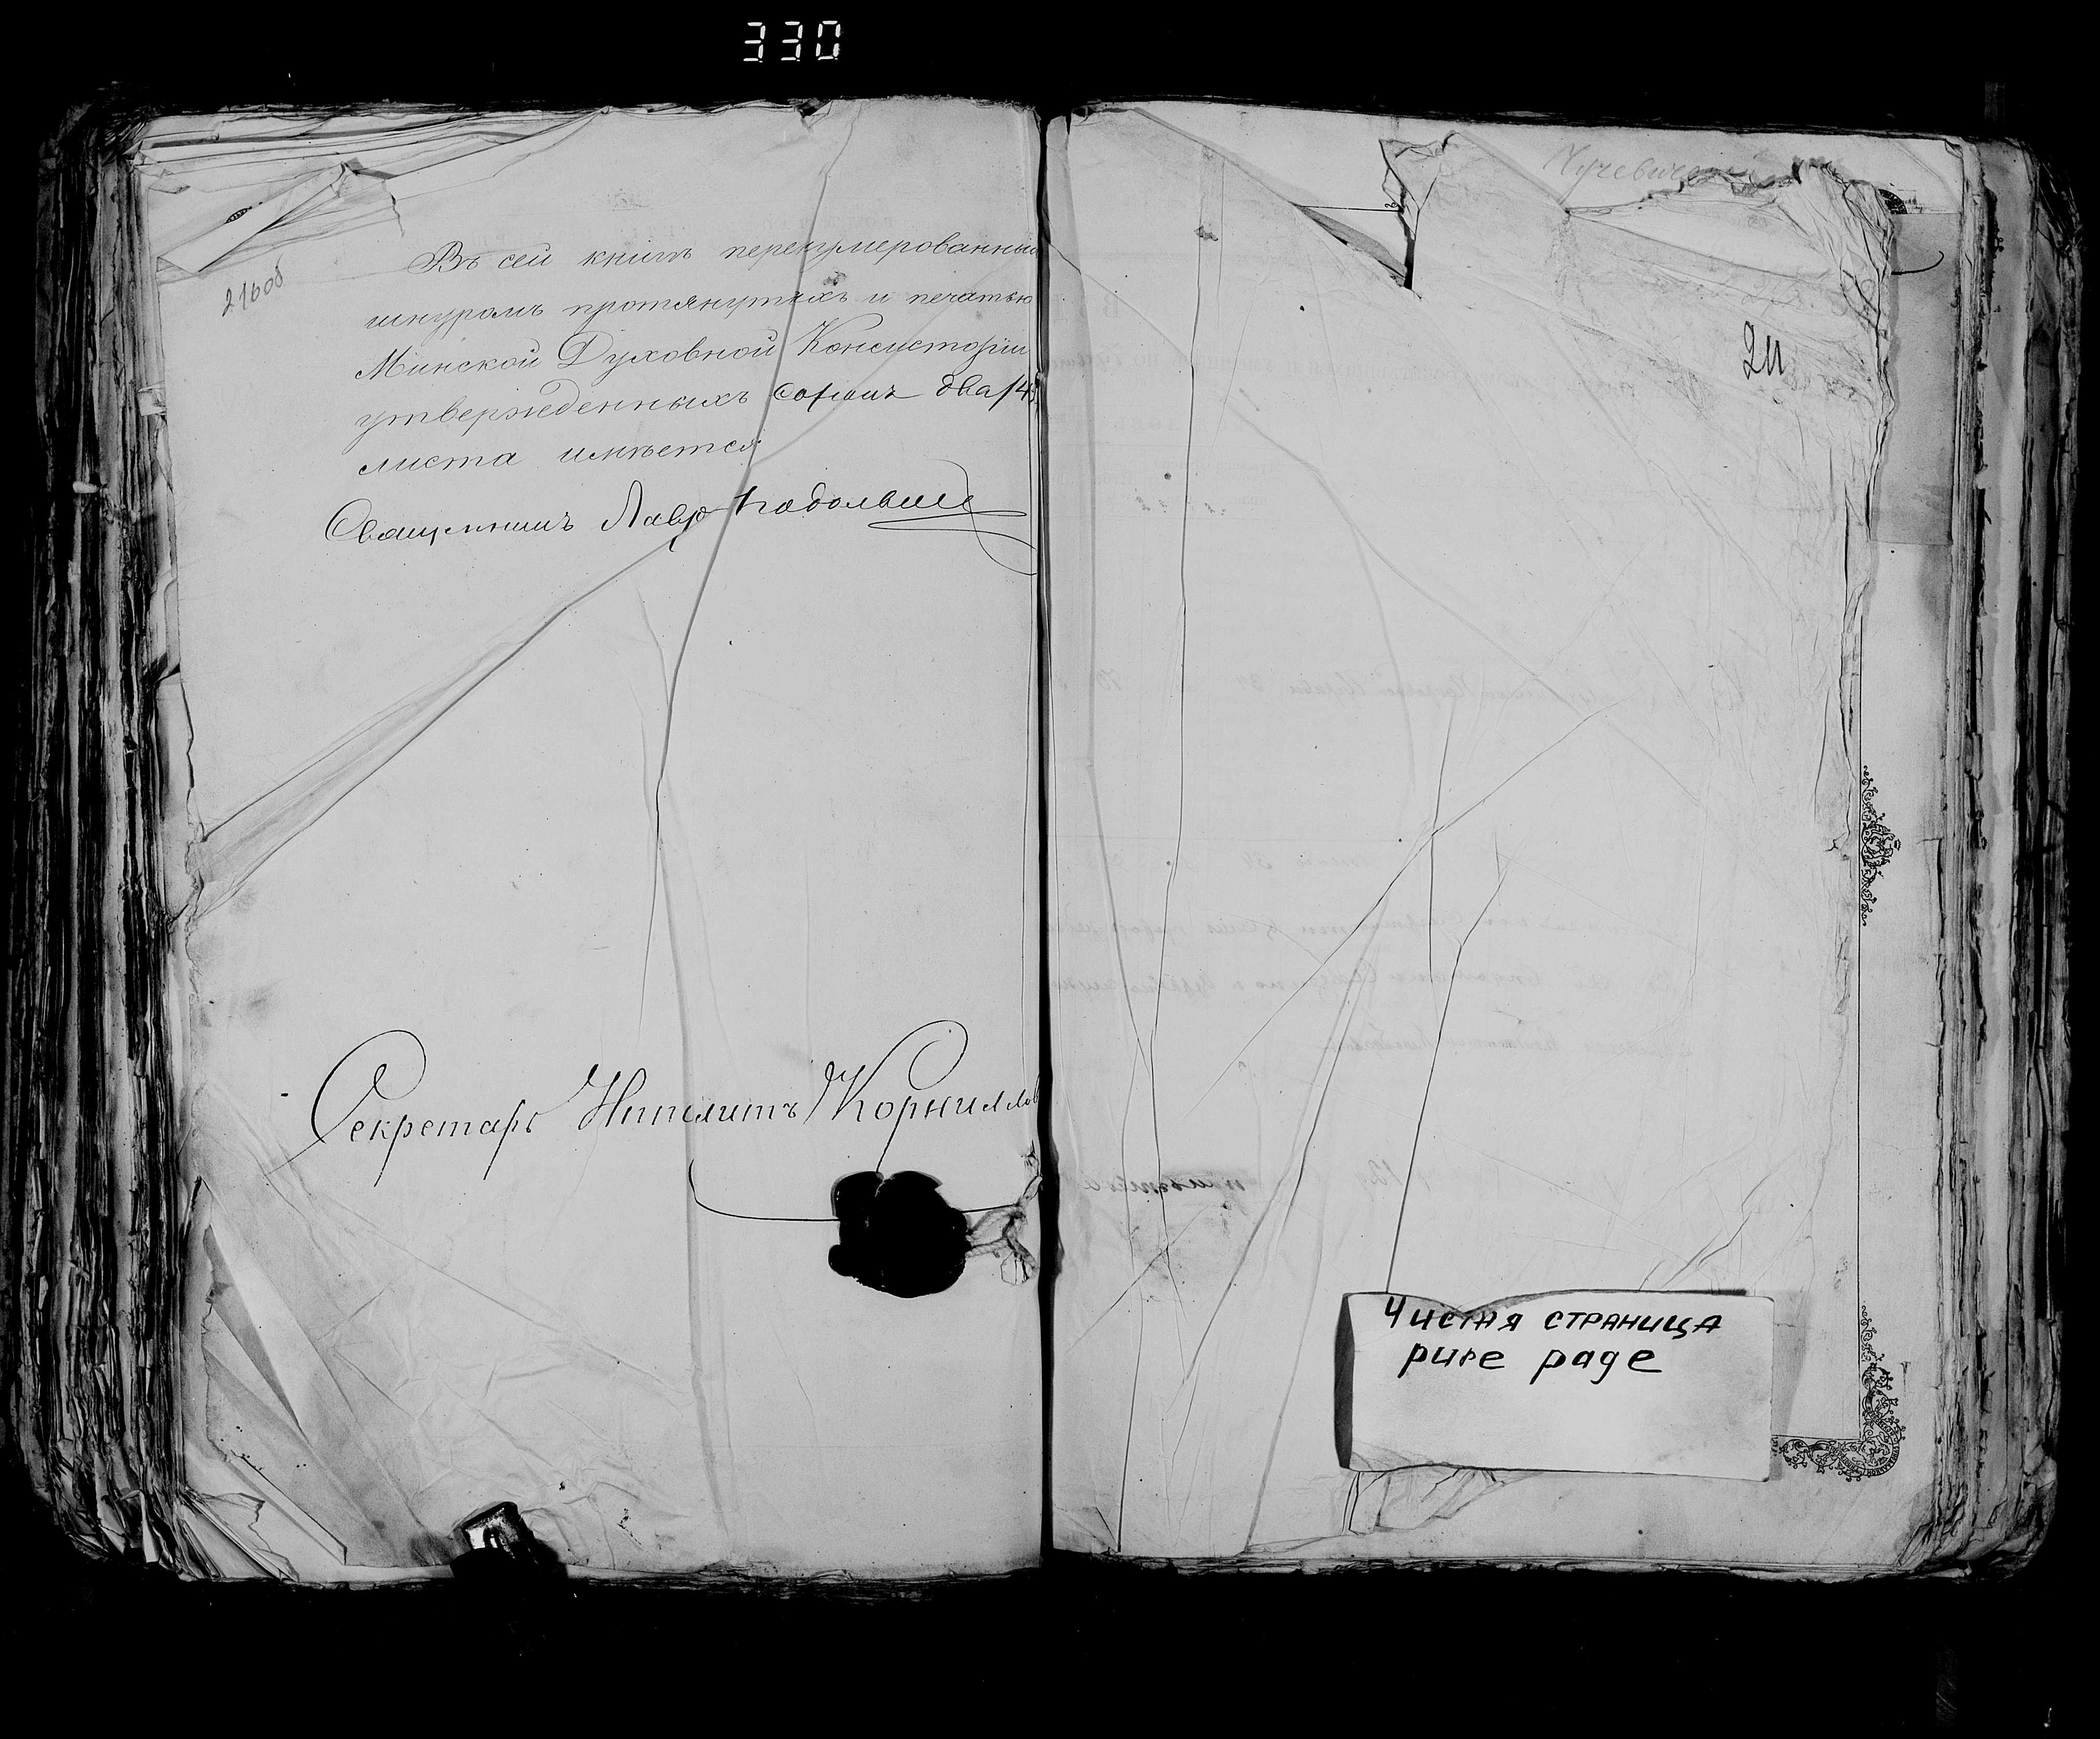 330
210об
Въ сей книгѣ перенумерованны
шнуромъ протянутыхъ и печатью
Минской Духовной Консисторіи
утвержденныхъ сорокъ два /4
листа имѣется
Священникъ
Секретарь Ипполитъ Корнилов
211
Чистая страница
pure page